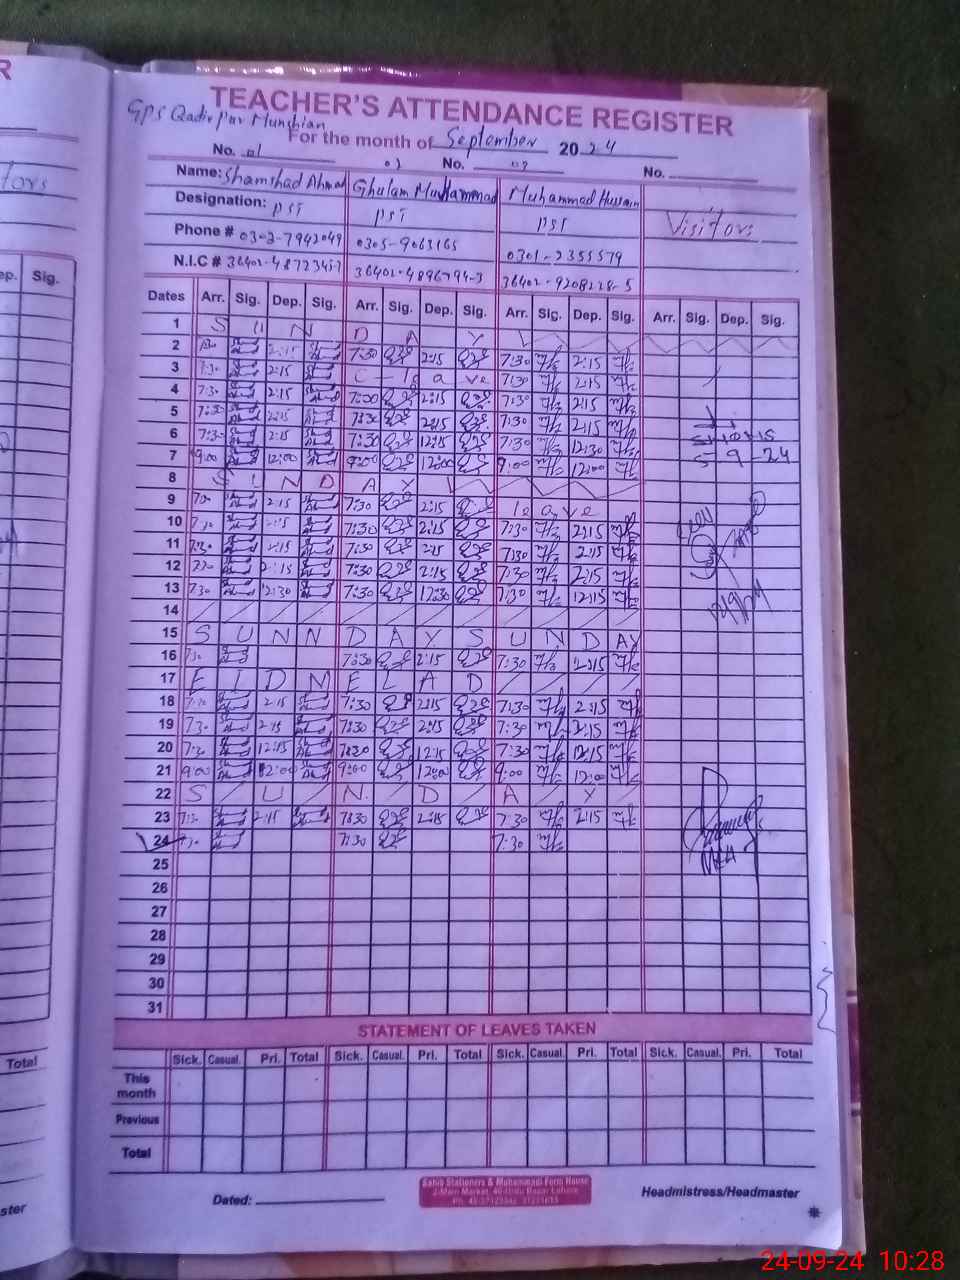 R
TEACHER'S ATTENDANCE REGISTER
GPS Qadirpur Munshian
For the month of September 2024
No. 01 No. No.
Name: Shamshad Ahmad Ghulam Muhammad Muhammad Hussain
Designation: PST PST PST Visitors
Phone # 0302-7942049 0305-9063165 0301-2355579
N.I.C # 36402-4896794-3 36402-9208228-5
Dates Arr. Sig. Dep. Sig. Arr. Sig. Dep. Sig. Arr. Sig. Dep. Sig. Arr. Sig. Dep. Sig.
1 S U N D A Y
2 7:30 2:15 7:30 2:15 7:30 2:15
3 7:30 2:15 C-leave 7:30 2:15
4 7:30 2:15 7:30 2:15 7:30 2:15
5 7:30 2:15 7:30 2:15 7:30 2:15
6 7:30 2:15 7:30 12:15 7:30 12:30
7 9:00 12:00 9:00 12:00 9:00 12:00
5 9 24
8 S U N D A Y
9 7:30 2:15 7:30 2:15 leave
10 7:30 2:15 7:30 2:15 7:30 2:15
11 7:30 2:15 7:30 2:15 7:30 2:15
12 7:30 2:15 7:30 2:15 7:30 2:15
13 7:30 12:30 7:30 12:30 7:30 12:15
14
15 S U N N D A Y S U N D AY
16 7:30 7:30 2:15 7:30 2:15
17 E I D M E L A D
18 7:30 2:15 7:30 2:15 7:30 2:15
19 7:30 2:15 7:30 2:15 7:30 2:15
20 7:30 12:15 7:30 12:15 7:30 12:15
21 9:00 12:00 9:00 12:00 9:00 12:00
22 S U N D A Y
23 7:30 2:15 7:30 2:15 7:30 2:15
24 7:30 7:30 7:30
25
26
27
28
29
30
31
STATEMENT OF LEAVES TAKEN
Sick. Casual. Pri. Total Sick. Casual. Pri. Total Sick. Casual. Pri. Total Sick. Casual. Pri. Total
This month
Previous
Total
Sabib Stationers & Muhammadi Form House
2-Main Market, 40-Urdu Bazar Lahore
Dated: Headmistress/Headmaster
ep. Sig.
Total
24-09-24 10:28